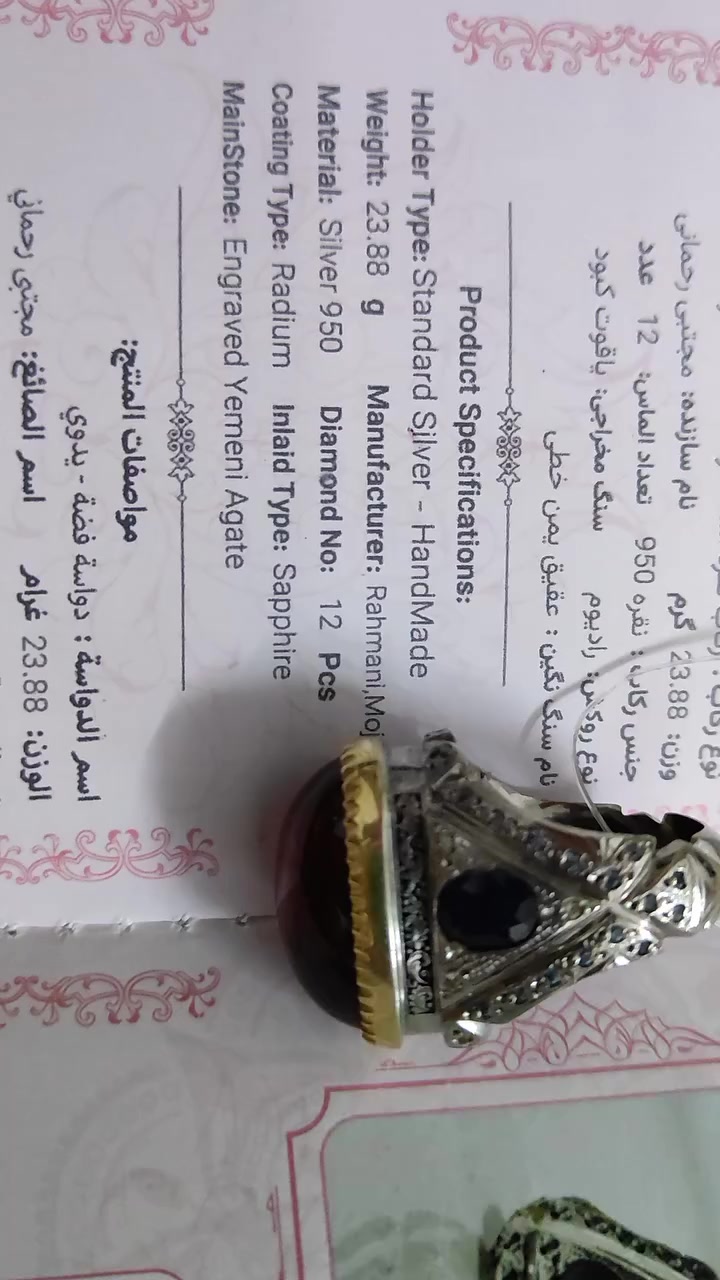 نام سازنده: مجتبی رحمانی
وزن: 23.88 گرم
تعداد الماس: 12 عدد
جنس رکاب: نقره 950
سنگ مخراجی: یاقوت کبود
نوع روکش: رادیوم
نام سنگ نگین: عقیق یمن خطی
Product Specifications:
Holder Type: Standard Silver - HandMade
Weight: 23.88 g Manufacturer: Rahmani,Moj
Material: Silver 950 Diamond No: 12 Pcs
Coating Type: Radium Inlaid Type: Sapphire
MainStone: Engraved Yemeni Agate
مواصفات المنتج:
اسم الدواسة : دواسة فضة - يدوي
الوزن: 23.88 غرام اسم الصائغ: مجتبی رحماني